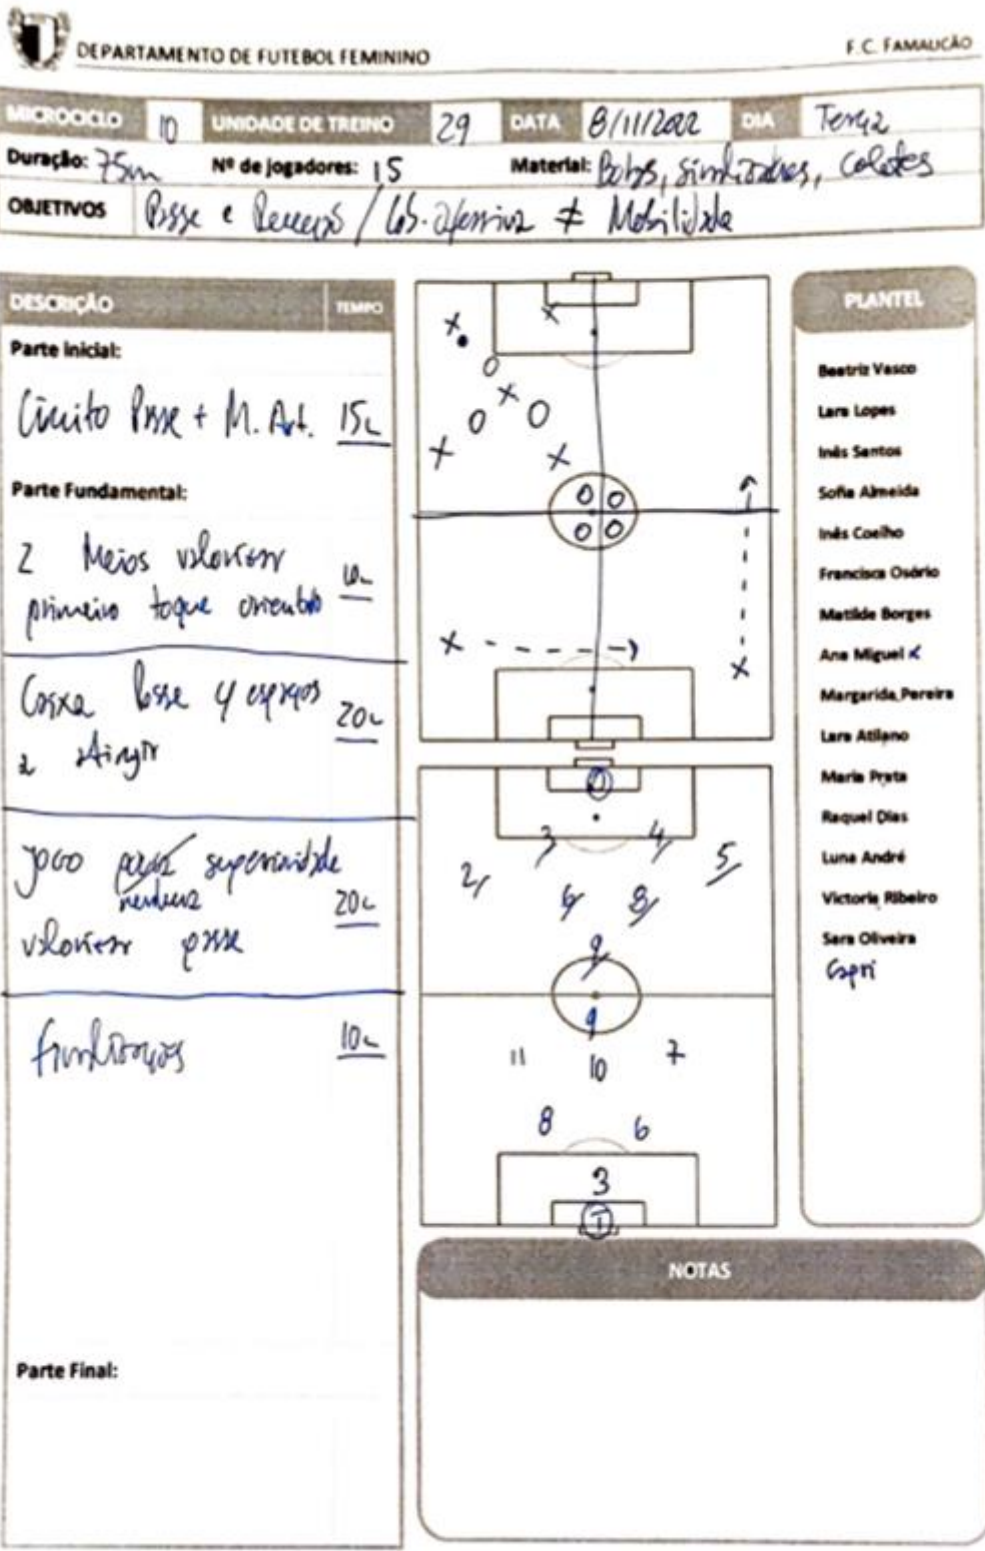 DEPARTAMENTO DE FUTEBOL FEMININO
F.C. FAMALICÃO
MICROCICLO 10 UNIDADE DE TREINO 29 DATA 8/11/2022 DIA Terça
Duração: 75m Nº de jogadores: 15 Material: Bolas, sinalizadores, coletes
OBJETIVOS Passe e Receção / ofensiva ≠ Mobilidade
DESCRIÇÃO TEMPO
Parte Inicial:
Circuito Passe + M. Art. 15
Parte Fundamental:
2 Meios valorizar 10
primeiro toque orientado
Posse 4 espaços 20
a atingir
Jogo superioridade
20
valorizar posse
Finalizações 10
Parte Final:
X X
O
X
O O
X X
O O
O O
X
X
3 4
2 5
6 8
9
9
11 10 7
8 6
3
1
PLANTEL
Beatriz Vasco
Lara Lopes
Inês Santos
Sofia Almeida
Inês Coelho
Francisca Osório
Matilde Borges
Ana Miguel x
Margarida Pereira
Lara Atilano
Maria Prata
Raquel Dias
Luna André
Victoria Ribeiro
Sara Oliveira
Capri
NOTAS